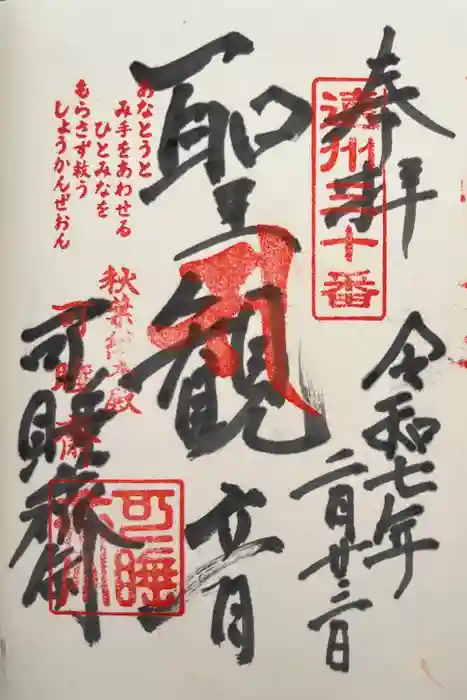 奉拝
遠州三十番
令和七年
二月廿二日
聖観音
あなとうと
み手をあわせる
ひとみなを
もらさず救う
しょうかんぜおん
秋葉総本殿
可睡斎
可睡斎
可睡